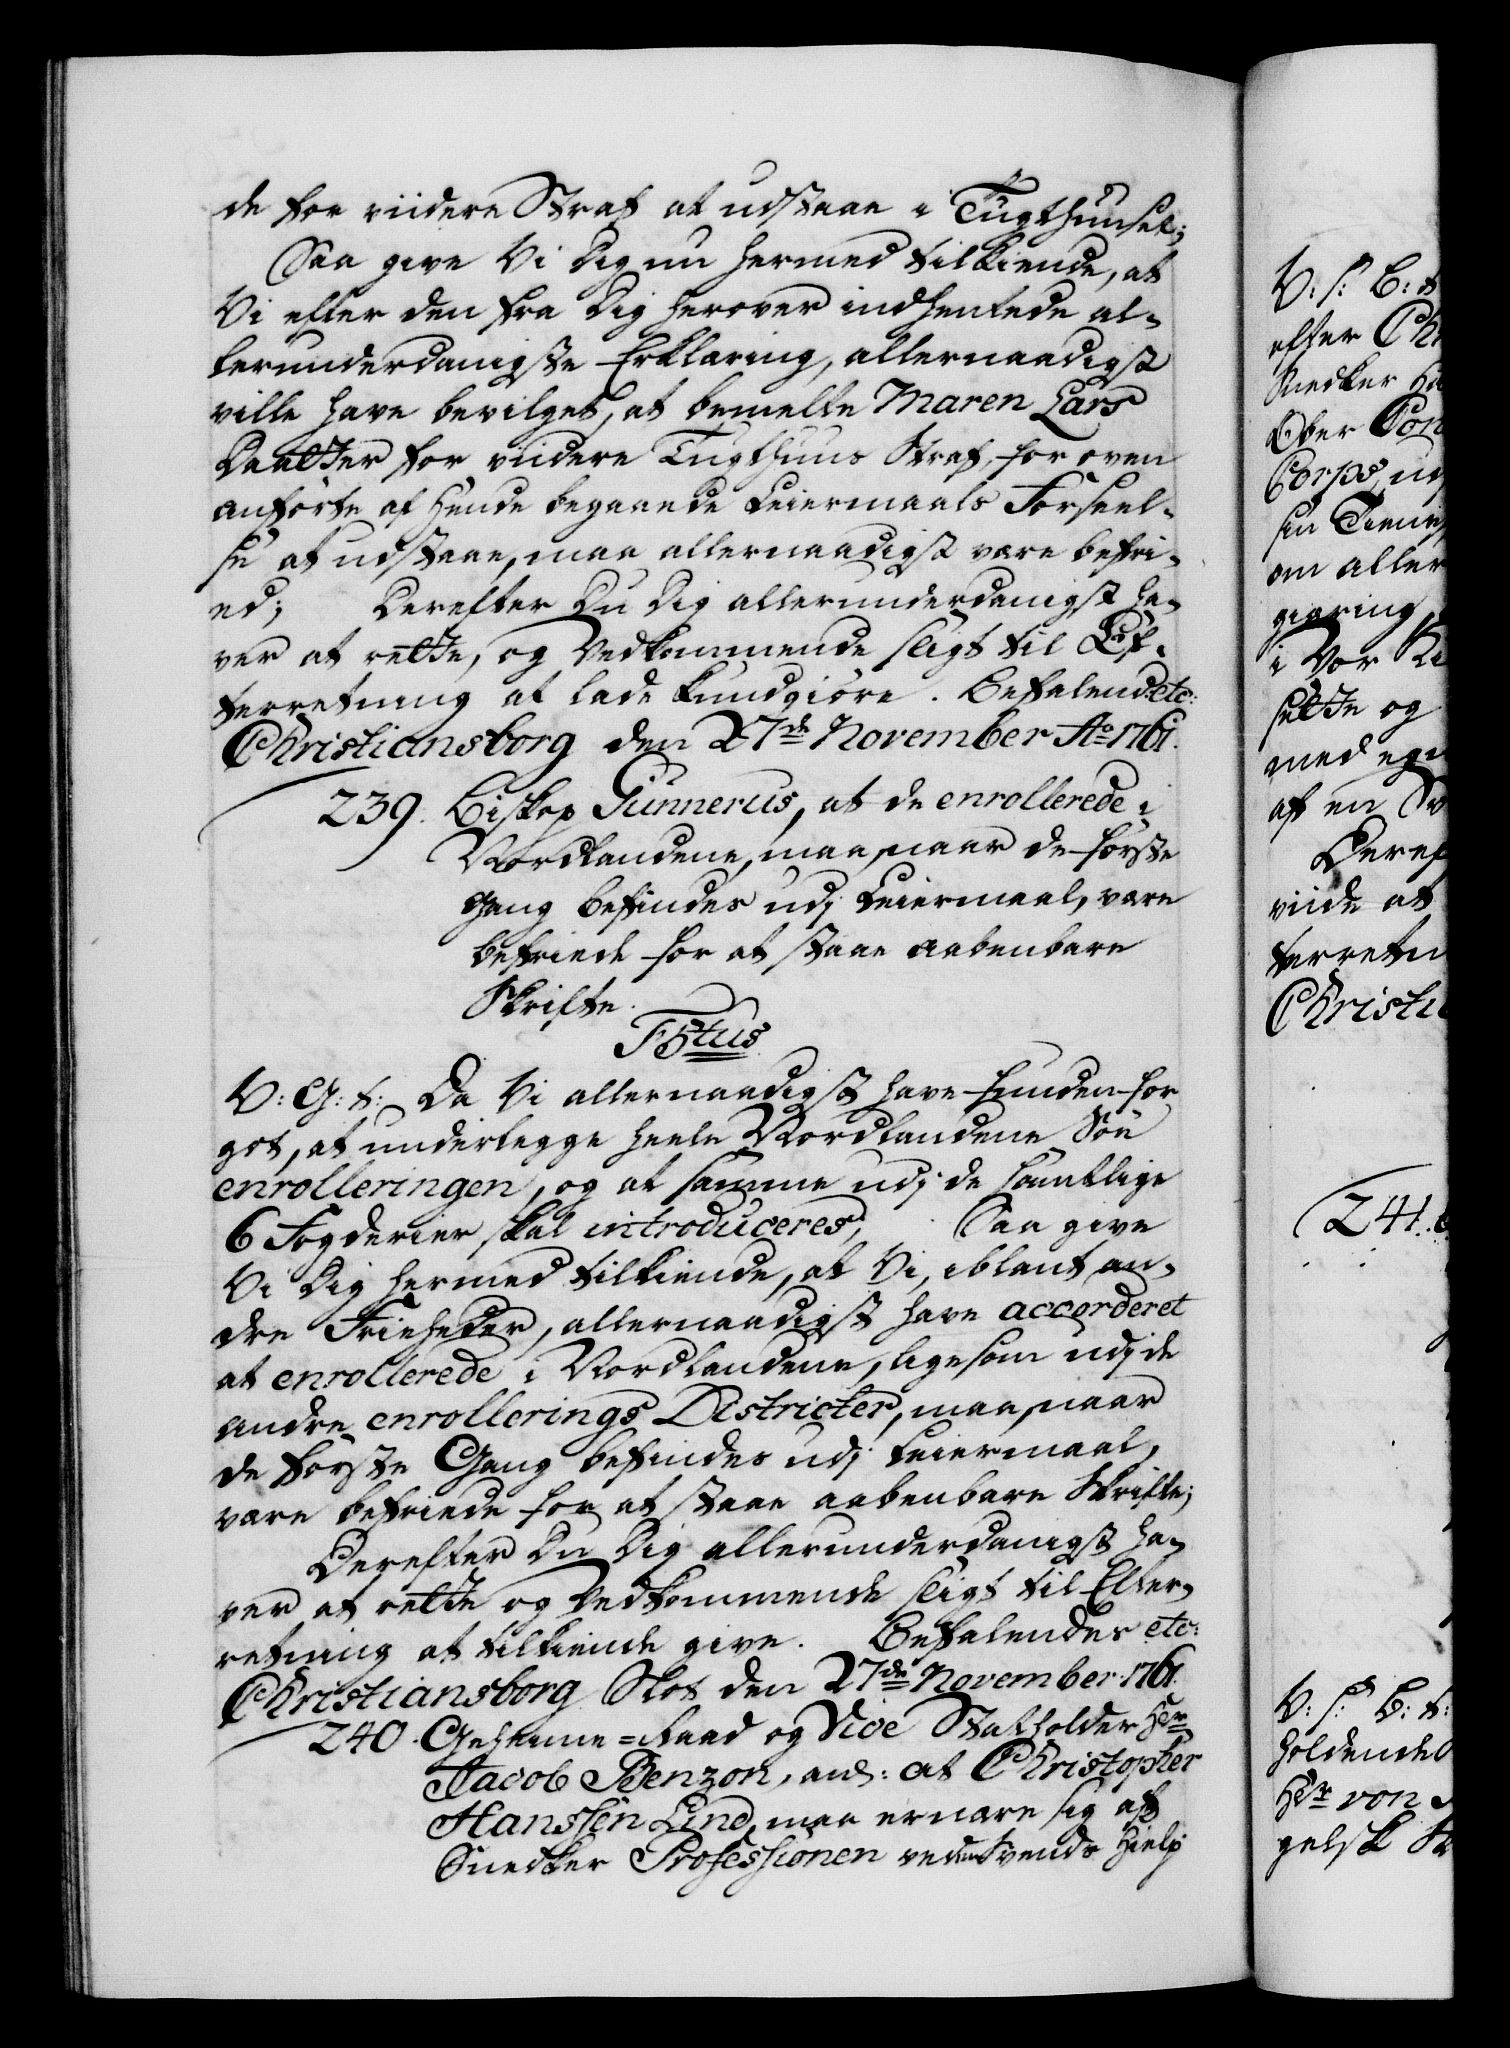 de for viidere Straf at udstaae i Tugthuuset;
Saa give Vi Dig nu hermed tilkiende, at
Vi efter den fra Dig herover indhentede al-
lerunderdanigste Erklæring, allernaadigst
ville have bevilget, at bemelte Maren Lars
Daatter for viidere Tugthuus Straf, for oven
anførte af Hende begaaede Leiermaals Forseel-
se at udstaae, maa allernaadigst være befri-
ed; Derefter Du Dig allerunderdanigst ha-
ver at rette, og Vedkommende sligt til Ef-
terretning at lade kundgiøre. Befalend etc:
Christiansborg den 27de November Ao 1761.
239. Biskop Gunnerus, at de enrollerede i
Nordlandene, maa, naar de første
Gang befindes udj Leiermaal, være
befriede for at staae aabenbare
Skrifte.
F5tus
V: G: t: Da Vi allernaadigst have funden for
got, at underlegge heele Nordlandene Søe
enrolleringen, og at samme udj de samtlige
6 Fogderier skal introduceres; Saa give
Vi Dig hermed tilkiende, at Vi, iblant an-
dre Friheder, allernaadigst have accorderet
at enrollerede i Nordlandene, ligesom udj de
andre enrollerings Districter, maa, naar
de første Gang befindes udj Leiermaal,
være befriede for at staae aabenbare Skrifte;
Derefter Du Dig allerunderdanigst ha-
ver at rette og Vedkommende sligt til Efter-
retning at tilkiende give. Befalendes etc:
Christiansborg Slot den 27de November 1761.
240. Geheime-Raad og Vice Statholder Hr
Jacob Benzon, anl: at Christopher
Hanssen Lind, maa ernære sig af
Snedker Professionen ved Svends Hielp
V: S: B: t
efter Ch
Snedker Ha
Ober Con
Corps, ud
sin Tienis
om aller
giøring
i Vor Ki
sette og
med egn
af en Sv
Deref
viide at
terretn
Christi
241.
V: S: B: t:
holdende
Hr von
gelsk